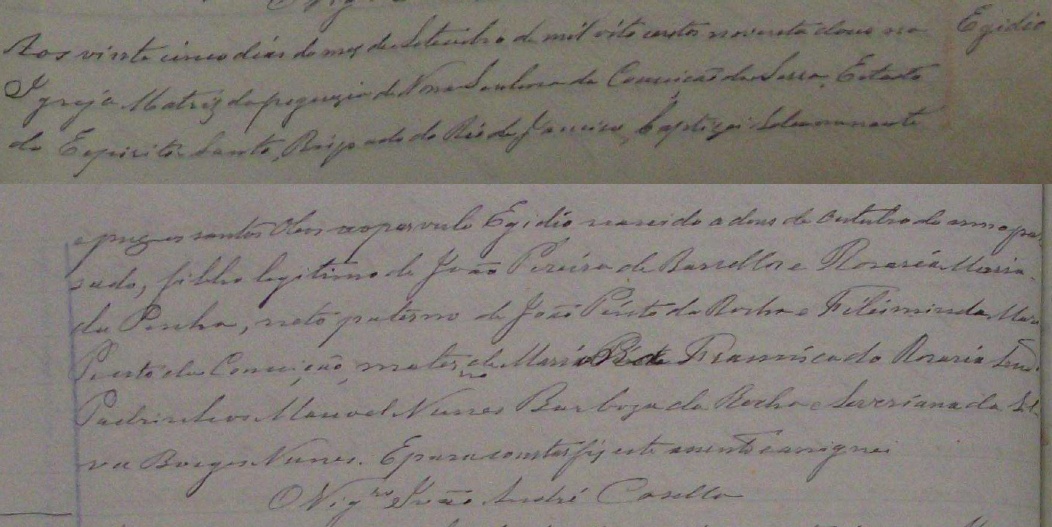 Egidio
Aos vinte cinco dias do mez de Setembro de mil oito centos noventa dous na
Igreja Matriz da freguezia de Nossa Senhora da Conceição da Serra, Estado
do Espirito Santo, Bispado do Rio de Janeiro, baptizei Solemnemente
e puz os santos Oleos ao parvulo Egidio nascido a dous de Outubro do anno pas
sado, filho legitimo de João Pereira de Barcellos e Rosaria Maria
da Penha, neto paterno de João Pinto da Rocha e Filéminda Mar
Pinto da Conceição, mater. de Maria Francisca do Rosario
Padrinhos Manoel Nunes Barboza da Rocha e Severiana da Sil
va Borges Nunes. E para constar fiz este assento e assignei
O Vigrº João André Casella